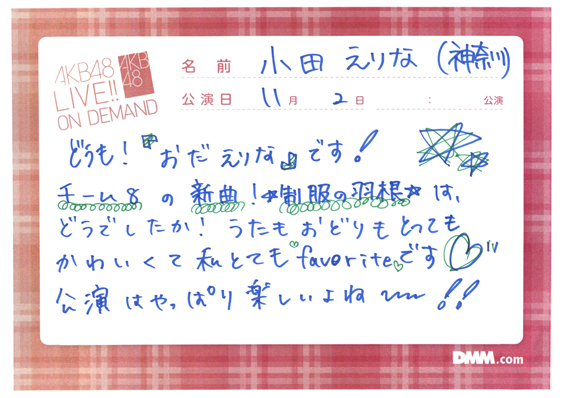 AKB48
LIVE!!
ON DEMAND
AKB
48
名前 小田 えりな (神奈川)
公演日 11月 2日 : 公演
どうも!『おだえりな』です!
チーム8の新曲!★制服の羽根★は、
どうでしたか!うたもおどりもとっても
かわいくて私とても♡favorite♡です♡
公演はやっぱり楽しいよね〜!!
DMM.com